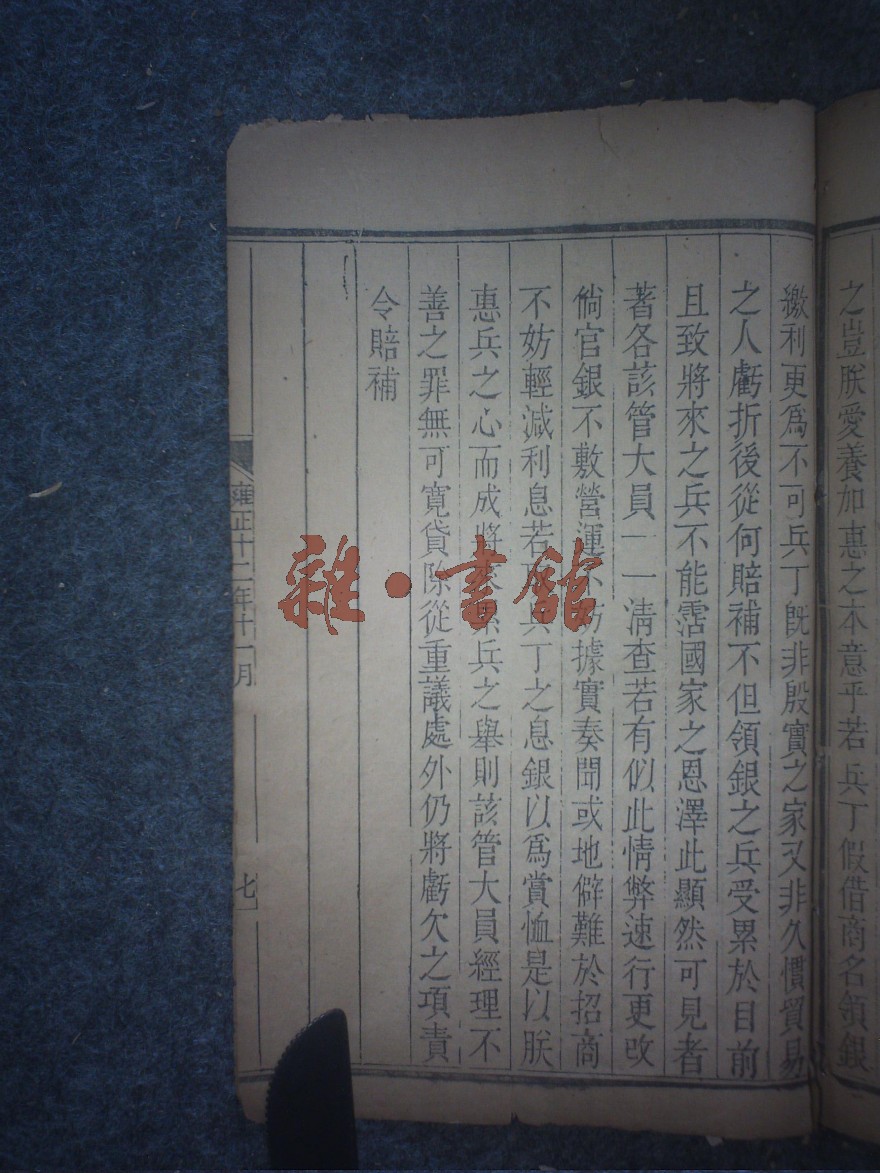 之豈朕愛養加惠之本意乎若兵丁假借商名領銀
繳利更爲不可兵丁既非殷實之家又非久慣貿易
之人虧折後從何賠補不但領銀之兵受累於目前
且致將來之兵不能霑國家之恩澤此顯然可見者
著各該管大員一一清查若有似此情弊速行更改
倘官銀不敷營運不妨據實奏聞或地僻難於招商
不妨輕減利息若取兵丁之息銀以爲賞恤是以朕
惠兵之心而成將來累兵之舉則該管大員經理不
善之罪無可寬貸除從重議處外仍將虧欠之項責
令賠補
雍正十二年十一月
七
雜·書館